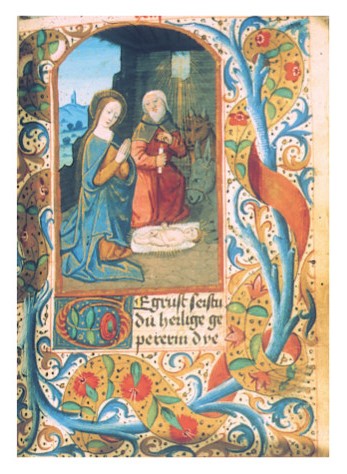 GEgrust seistu
du heilige ge
peterin dye